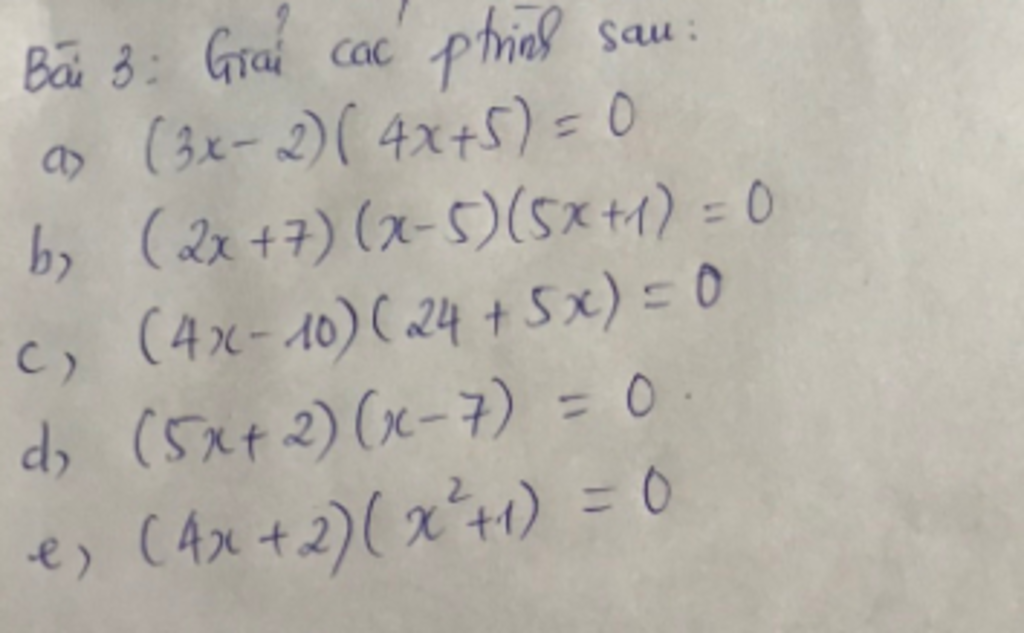 Bài 3: Giải các ptrình sau:
a) (3x - 2)( 4x+5) = 0
b) ( 2x +7) (x-5)(5x+1) = 0
c) (4x - 10)( 24 + 5x) = 0
d) (5x+ 2) (x-7) = 0.
e) (4x + 2)( x²+1) = 0